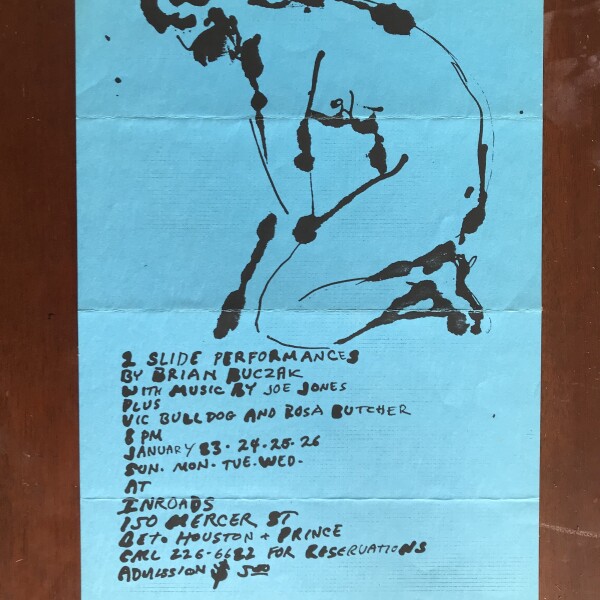 2 SLIDE PERFORMANCES
BY BRIAN BUCZAK
WITH MUSIC BY JOE JONES
PLUS
VIC BULLDOG AND ROSA BUTCHER
8 PM
JANUARY 23·24·25·26
SUN. MON. TUE. WED.
AT
INROADS
150 MERCER ST
BET. HOUSTON + PRINCE
CALL FOR RESERVATIONS
ADMISSION $ 5.00